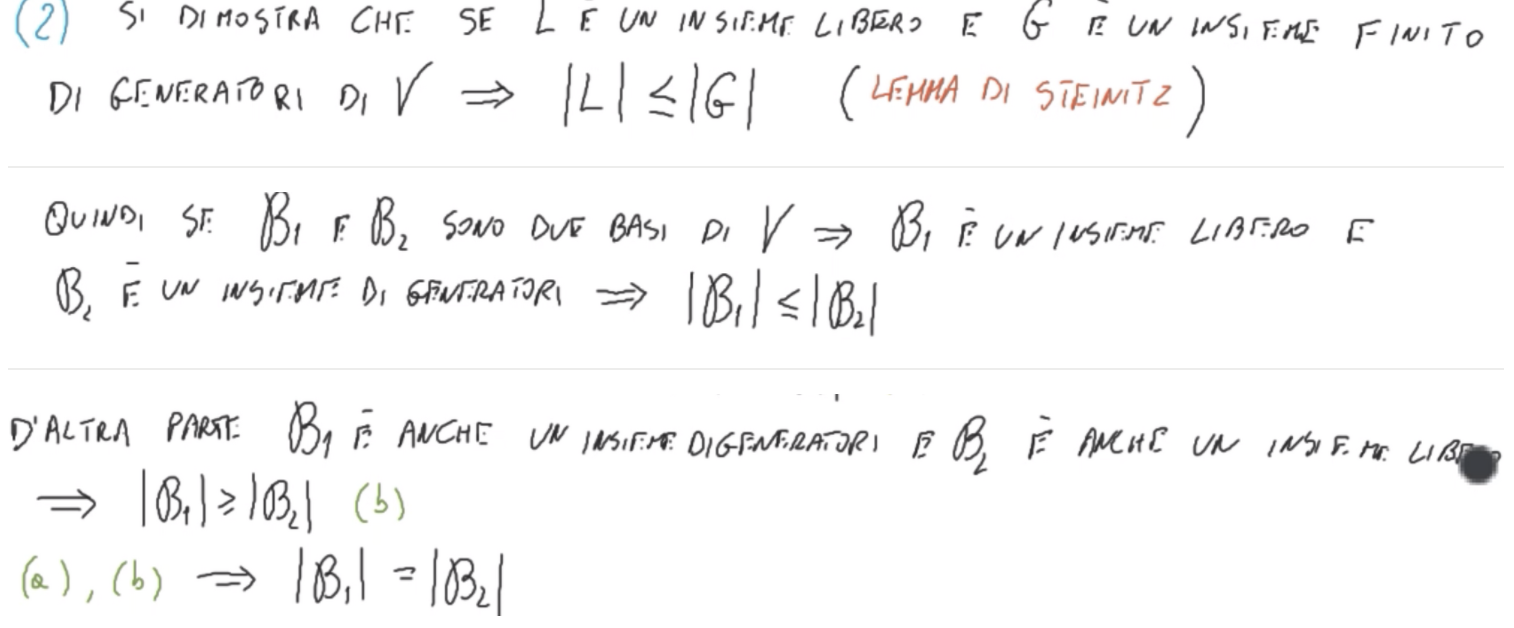 (2) SI DIMOSTRA CHE SE L È UN INSIEME LIBERO E G È UN INSIEME FINITO
DI GENERATORI DI V ⇒ |L| ≤ |G| (LEMMA DI STEINITZ)
QUINDI SE B₁ E B₂ SONO DUE BASI DI V ⇒ B₁ È UN INSIEME LIBERO E
B₂ È UN INSIEME DI GENERATORI ⇒ |B₁| ≤ |B₂|
D'ALTRA PARTE B₁ È ANCHE UN INSIEME DI GENERATORI E B₂ È ANCHE UN INSIEME LIBERO
⇒ |B₁| ≥ |B₂| (b)
(a), (b) ⇒ |B₁| = |B₂|